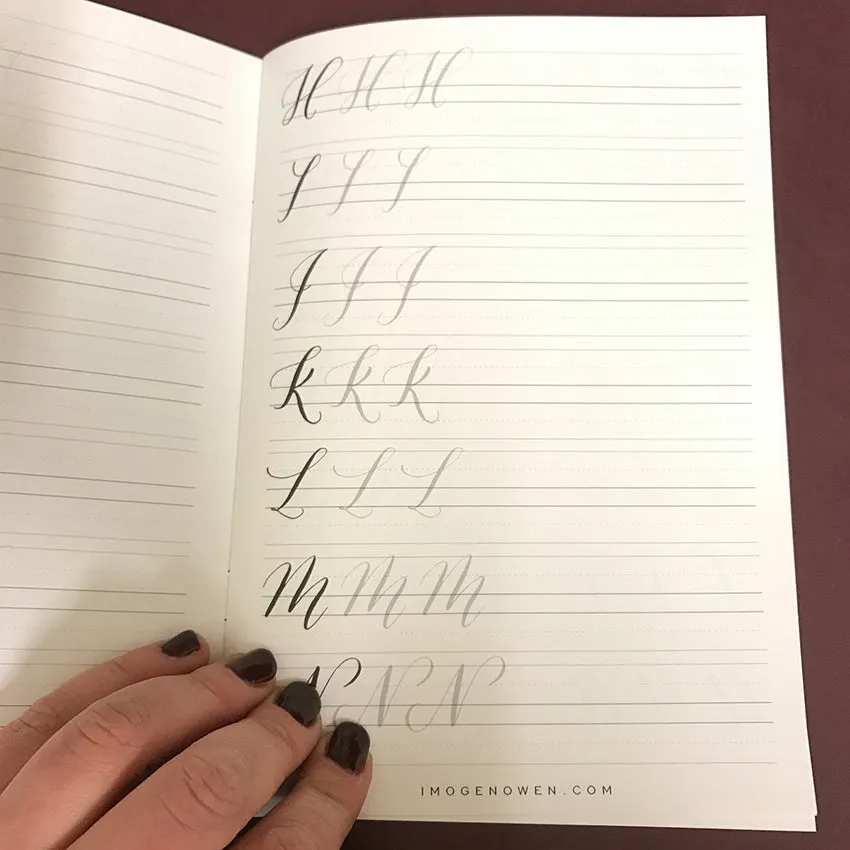 H H H
I I I
J J J
K K K
L L L
M M M
N N N
IMOGENOWEN.COM